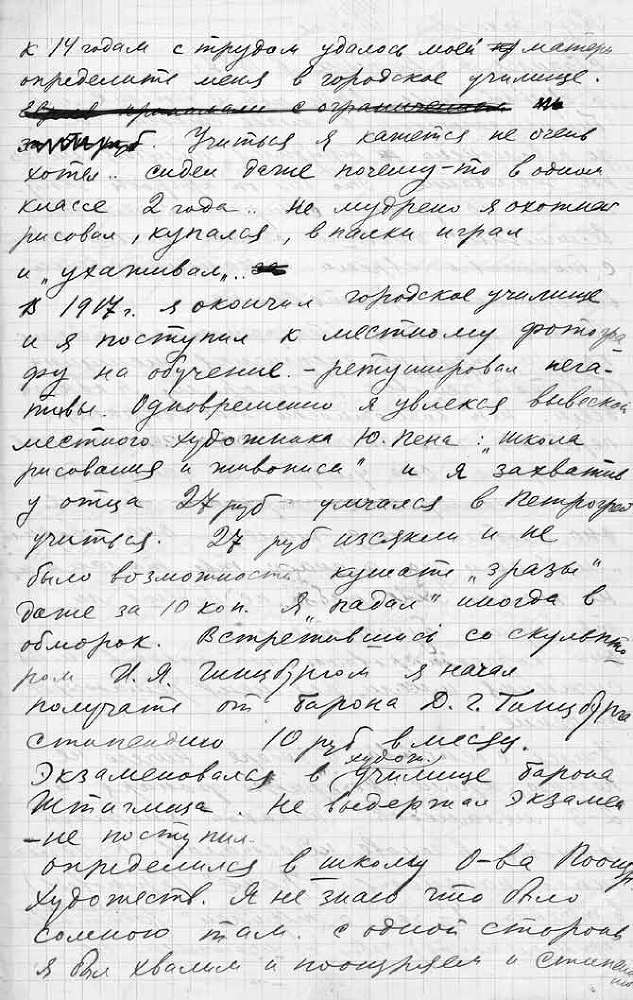 к 14 годам с трудом удалось моей матери
определить меня в городское училище.
Учиться я кажется не очень
хотел.. сидел даже почему-то в одном
классе 2 года.. не мудрено я охотней
рисовал, купался, в палки играл
и „ухаживал„..
В 1907г. я окончил городское училище
и я поступил к местному фотогра-
фу на обучение. - ретушировал нега-
тивы. Одновременно я увлекся вывеской
местного художника Ю. Пена: „школа
рисования и живописи" и я захватив
у отца 27 руб умчался в Петроград
учиться. 27 руб изсякли и не
было возможности кушать „зразы"
даже за 10 коп. Я „падал" иногда в
обморок. Встретившись со скульпто-
ром И.Я. Гинцбургом я начал
получать от барона Д.Г. Гинцбурга
стипендию 10 руб в месяц.
Экзаменовался в худож. училище барона
Штиглица. Не выдержал экзамен
- не поступил.
определился в школу О-ва Поощр
Художеств. Я не знаю что было
сомною там. с одной стороны
я был хвалим и поощряем и стипен